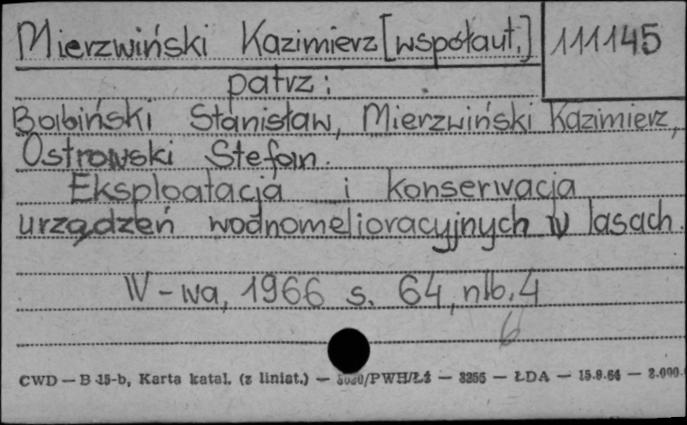 Mierzwiński Kazimierz [współaut.] 111145
patrz:
Babiński Stanisław, Mierzwiński Kazimierz,
Ostrowski Stefan.
Eksploatacja i konserwacja
urządzeń wodnomelioracyjnych w lasach.
W-wa, 1966 s. 64, nlb. 4
6
CWD — B 15-b, Karta katal. (z liniat.) — /PWH/Łź — 3255 — ŁDA — 15.9.64 — 2.000.